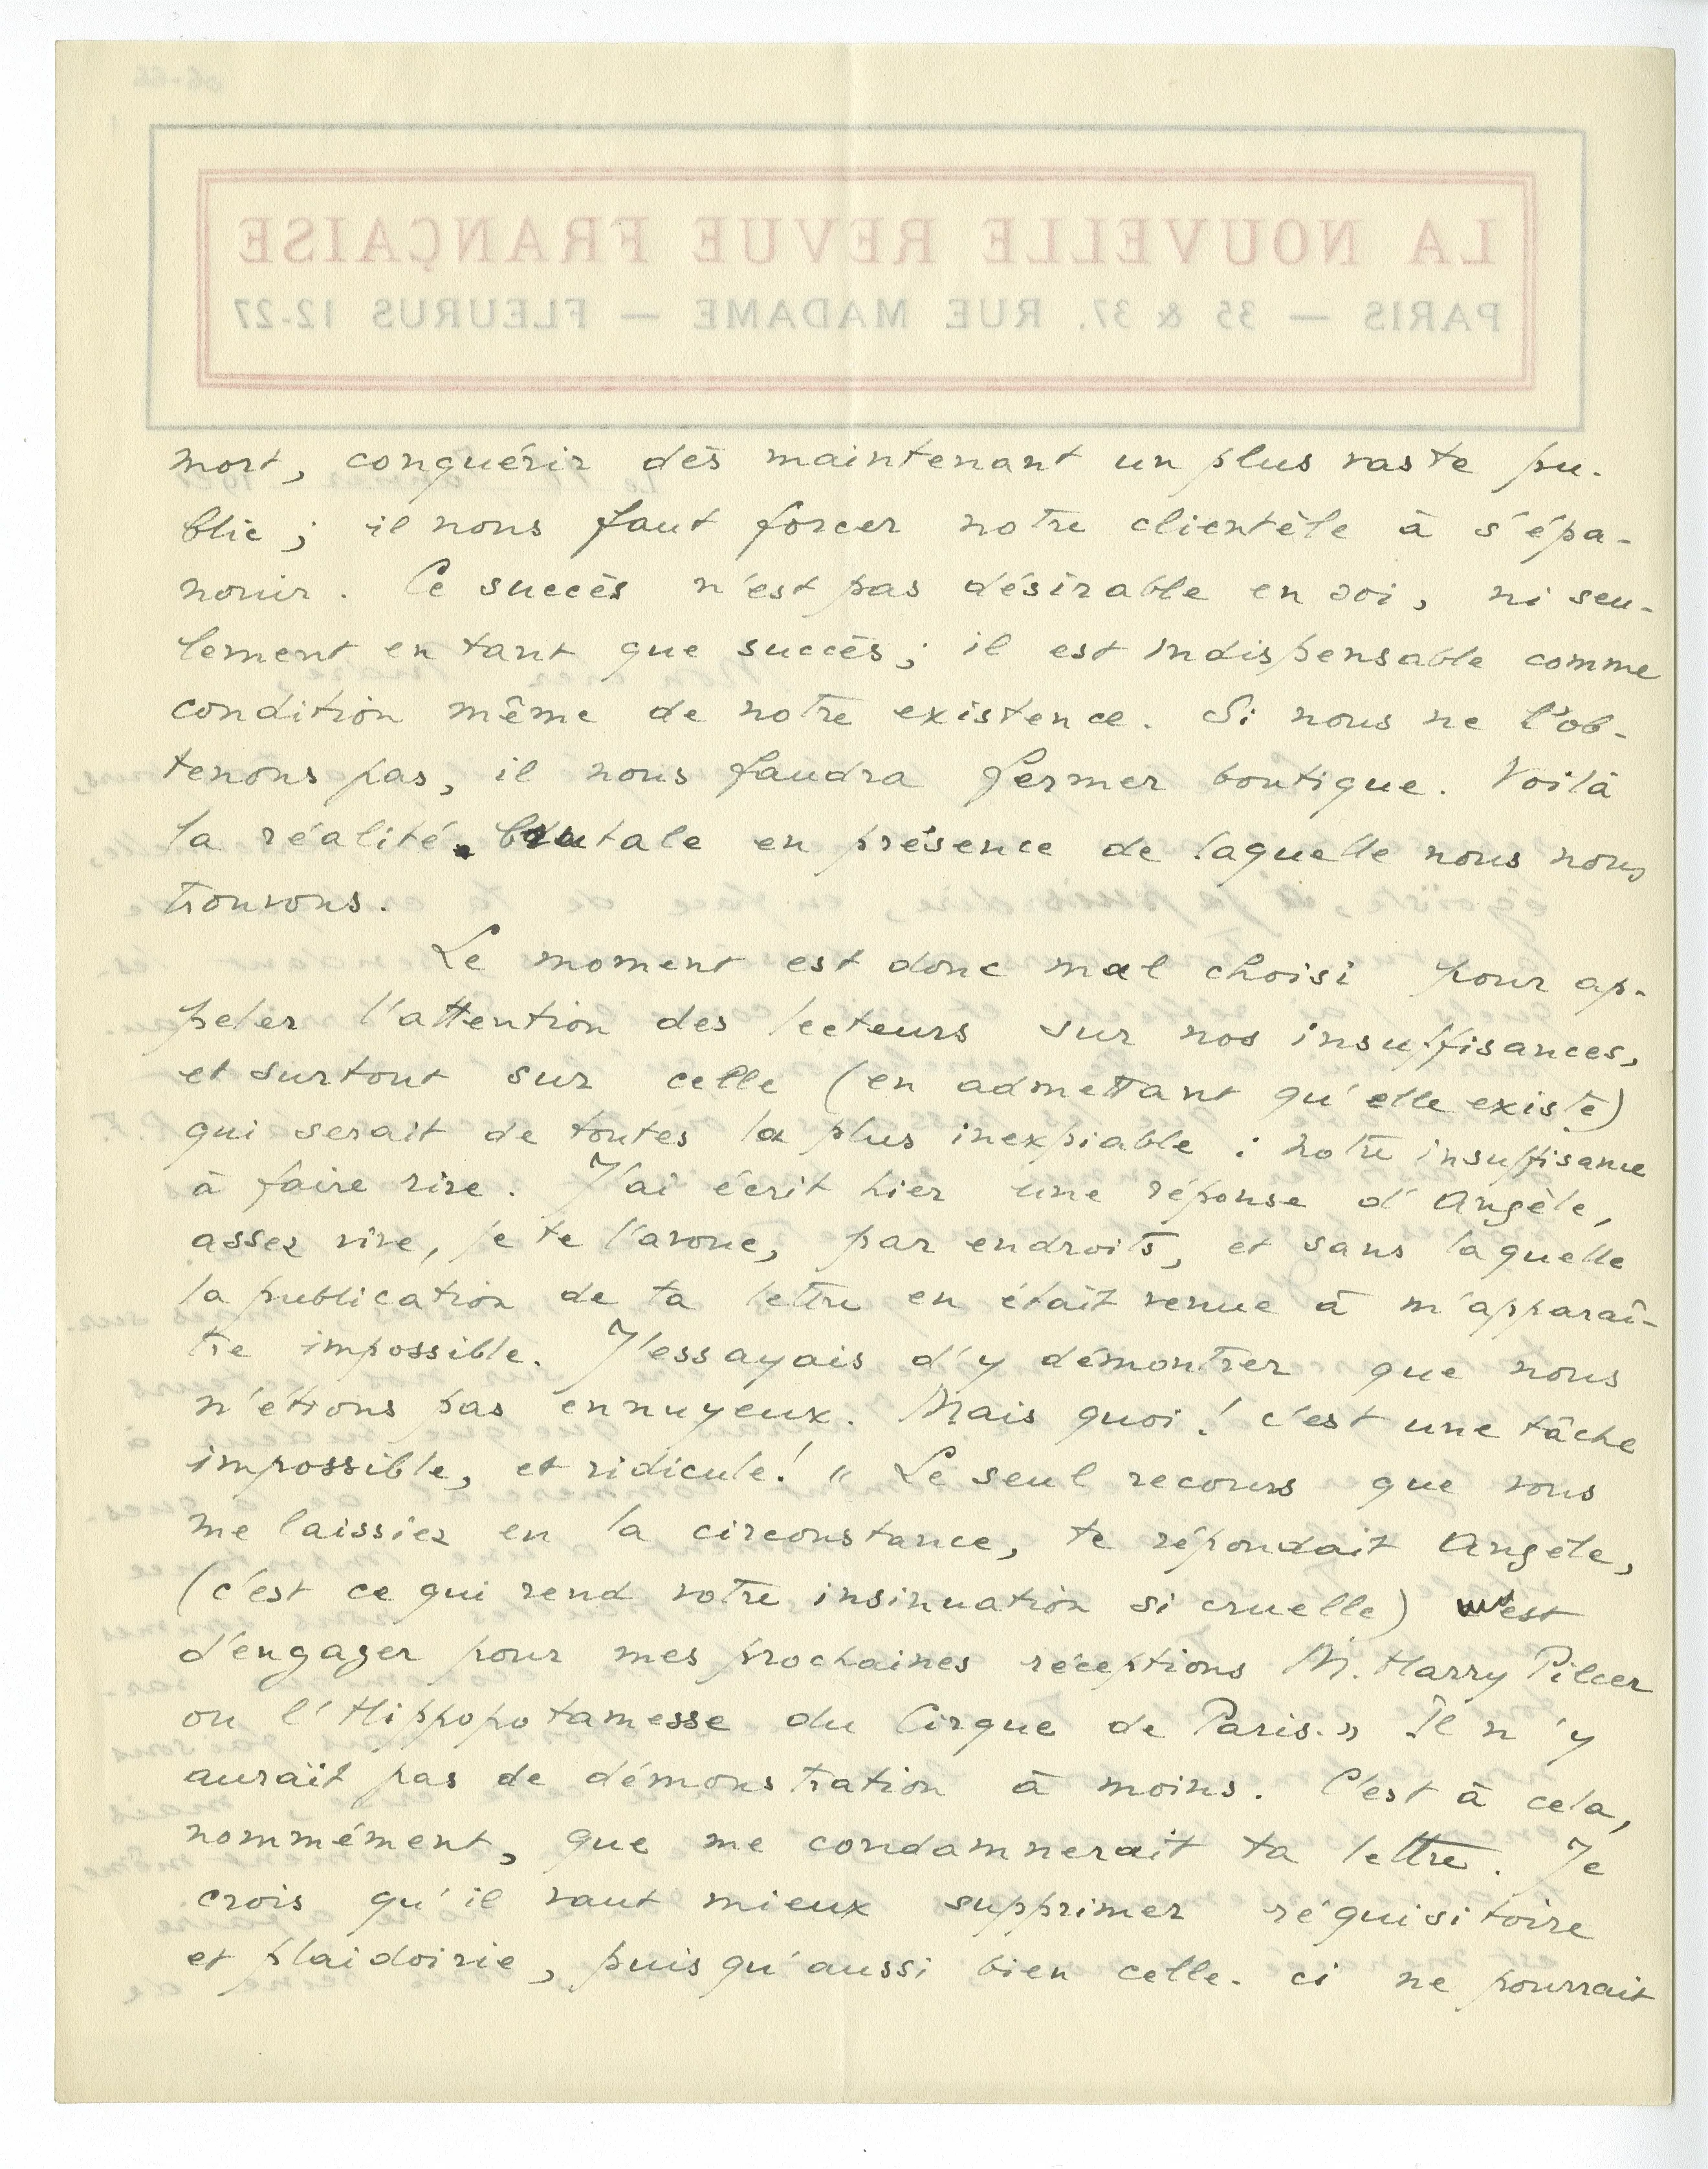 mort, conquérir dès maintenant un plus vaste pu-
blic ; il nous faut forcer notre clientèle à s'épa-
nouir. Ce succès n'est pas désirable en soi, ni seu-
lement en tant que succès ; il est indispensable comme
condition même de notre existence. Si nous ne l'ob-
tenons pas, il nous faudra fermer boutique. Voilà
la réalité brutale en présence de laquelle nous nous
trouvons.
Le moment est donc mal choisi pour ap-
peler l'attention des lecteurs sur nos insuffisances,
et surtout sur celle (en admettant qu'elle existe)
qui serait de toutes la plus inexpiable : notre insuffisance
à faire rire. J'ai écrit hier une réponse d'Angèle,
assez vive, je te l'avoue, par endroits, et sans laquelle
la publication de ta lettre en était venue à m'apparaî-
tre impossible. J'essayais d'y démontrer que nous
n'étions pas ennuyeux. Mais quoi ! c'est une tâche
impossible, et ridicule ! « Le seul recours que vous
me laissiez en la circonstance, te répondait Angèle,
(c'est ce qui rend votre insinuation si cruelle) c'est
d'engager pour mes prochaines réceptions M. Harry Pilcer
ou l'Hippopotamesse du Cirque de Paris. » Il n'y
aurait pas de démonstration à moins. C'est à cela,
nommément, que me condamnerait ta lettre. Je
crois qu'il vaut mieux supprimer réquisitoire
et plaidoirie, puisqu'aussi bien celle-ci ne pourrait
LA NOUVELLE REVUE FRANÇAISE
PARIS — 35 & 37, RUE MADAME — FLEURUS 12-27